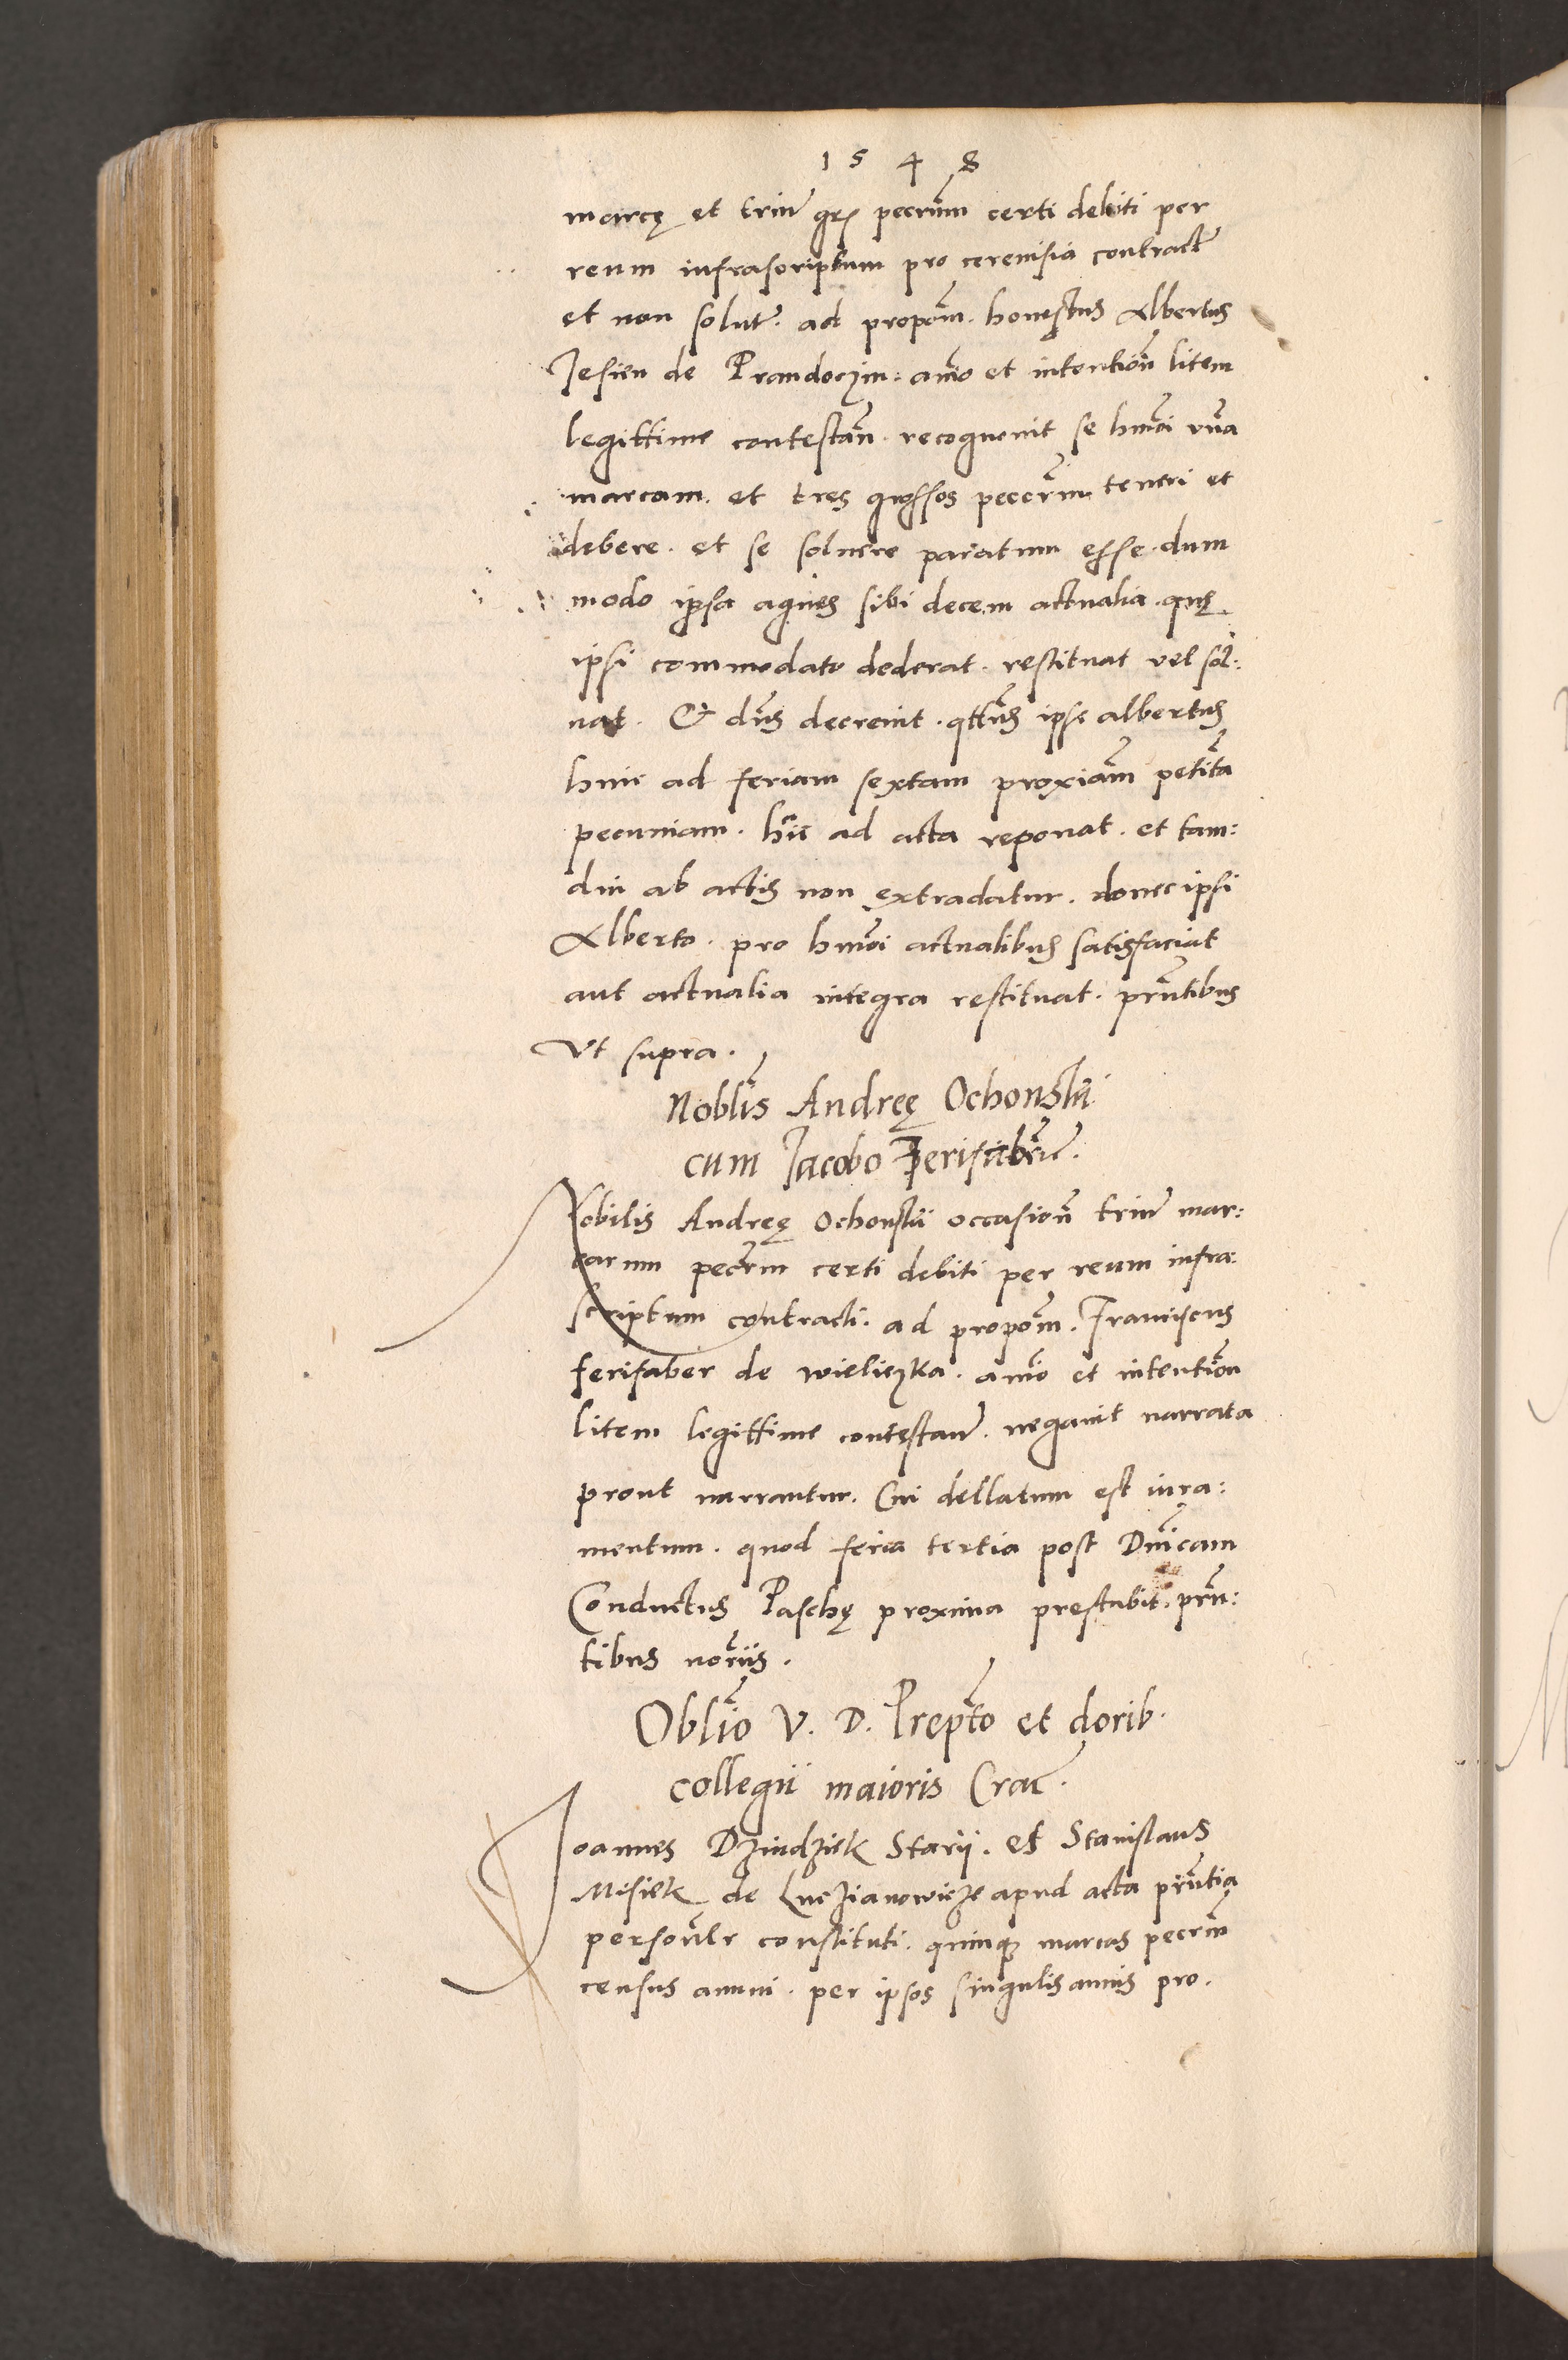 1548
marcę et trium gr pecrum certi debiti per
reum infrascriptum pro cerevisia contractr
et non solutr. ad propom. honestus Albertus
Jesien de Prandoczin: aīo et intention litem
legittime contestan. recognouit se hmōi vna
marcam. et tres grossos peccrm teneri et
debere. et se soluere paratum esse. dum
modo ipsa agnes sibi decem actualia. quę
ipsi commodato dederat. restituat vel sol:
uat. Et dns decreuit. qttus ipse albertus
hinc ad feriam sextam proxiam petita
pecuniam. hic ad acta reponat. et tam:
diu ab actis non extradatur. donec ipsi
Alberto. pro hmoi actualibus satisfaciat
aut actualia integra restituat. prntibus
Vt supra.
Noblis Andreę Ochonski
cum Jacobo Ferifabru.
Nobilis Andreę Ochonski occasion trium mar:
carum pecrm certi debiti per reum infra:
scriptum contracti. ad propom. Franciscus
ferifaber de wieliczka. aīo et intention
litem legittime contestan. negauit narrata
prout narrantur. Cui dellatum est iura:
mentum. quod feria tertia post Dnicam
Conductus Paschę proxima prestabit. prn:
tibus noriis.
Oblio V. D. Prepto et dorib.
collegii maioris Crac.
Joannes Dzindziek Starij. et Stanislaus
Misiek de Luczianowicze apud acta prntia
personlr constituti. quinque marcas pecrm
census annui. per ipsos singulis annis pro.